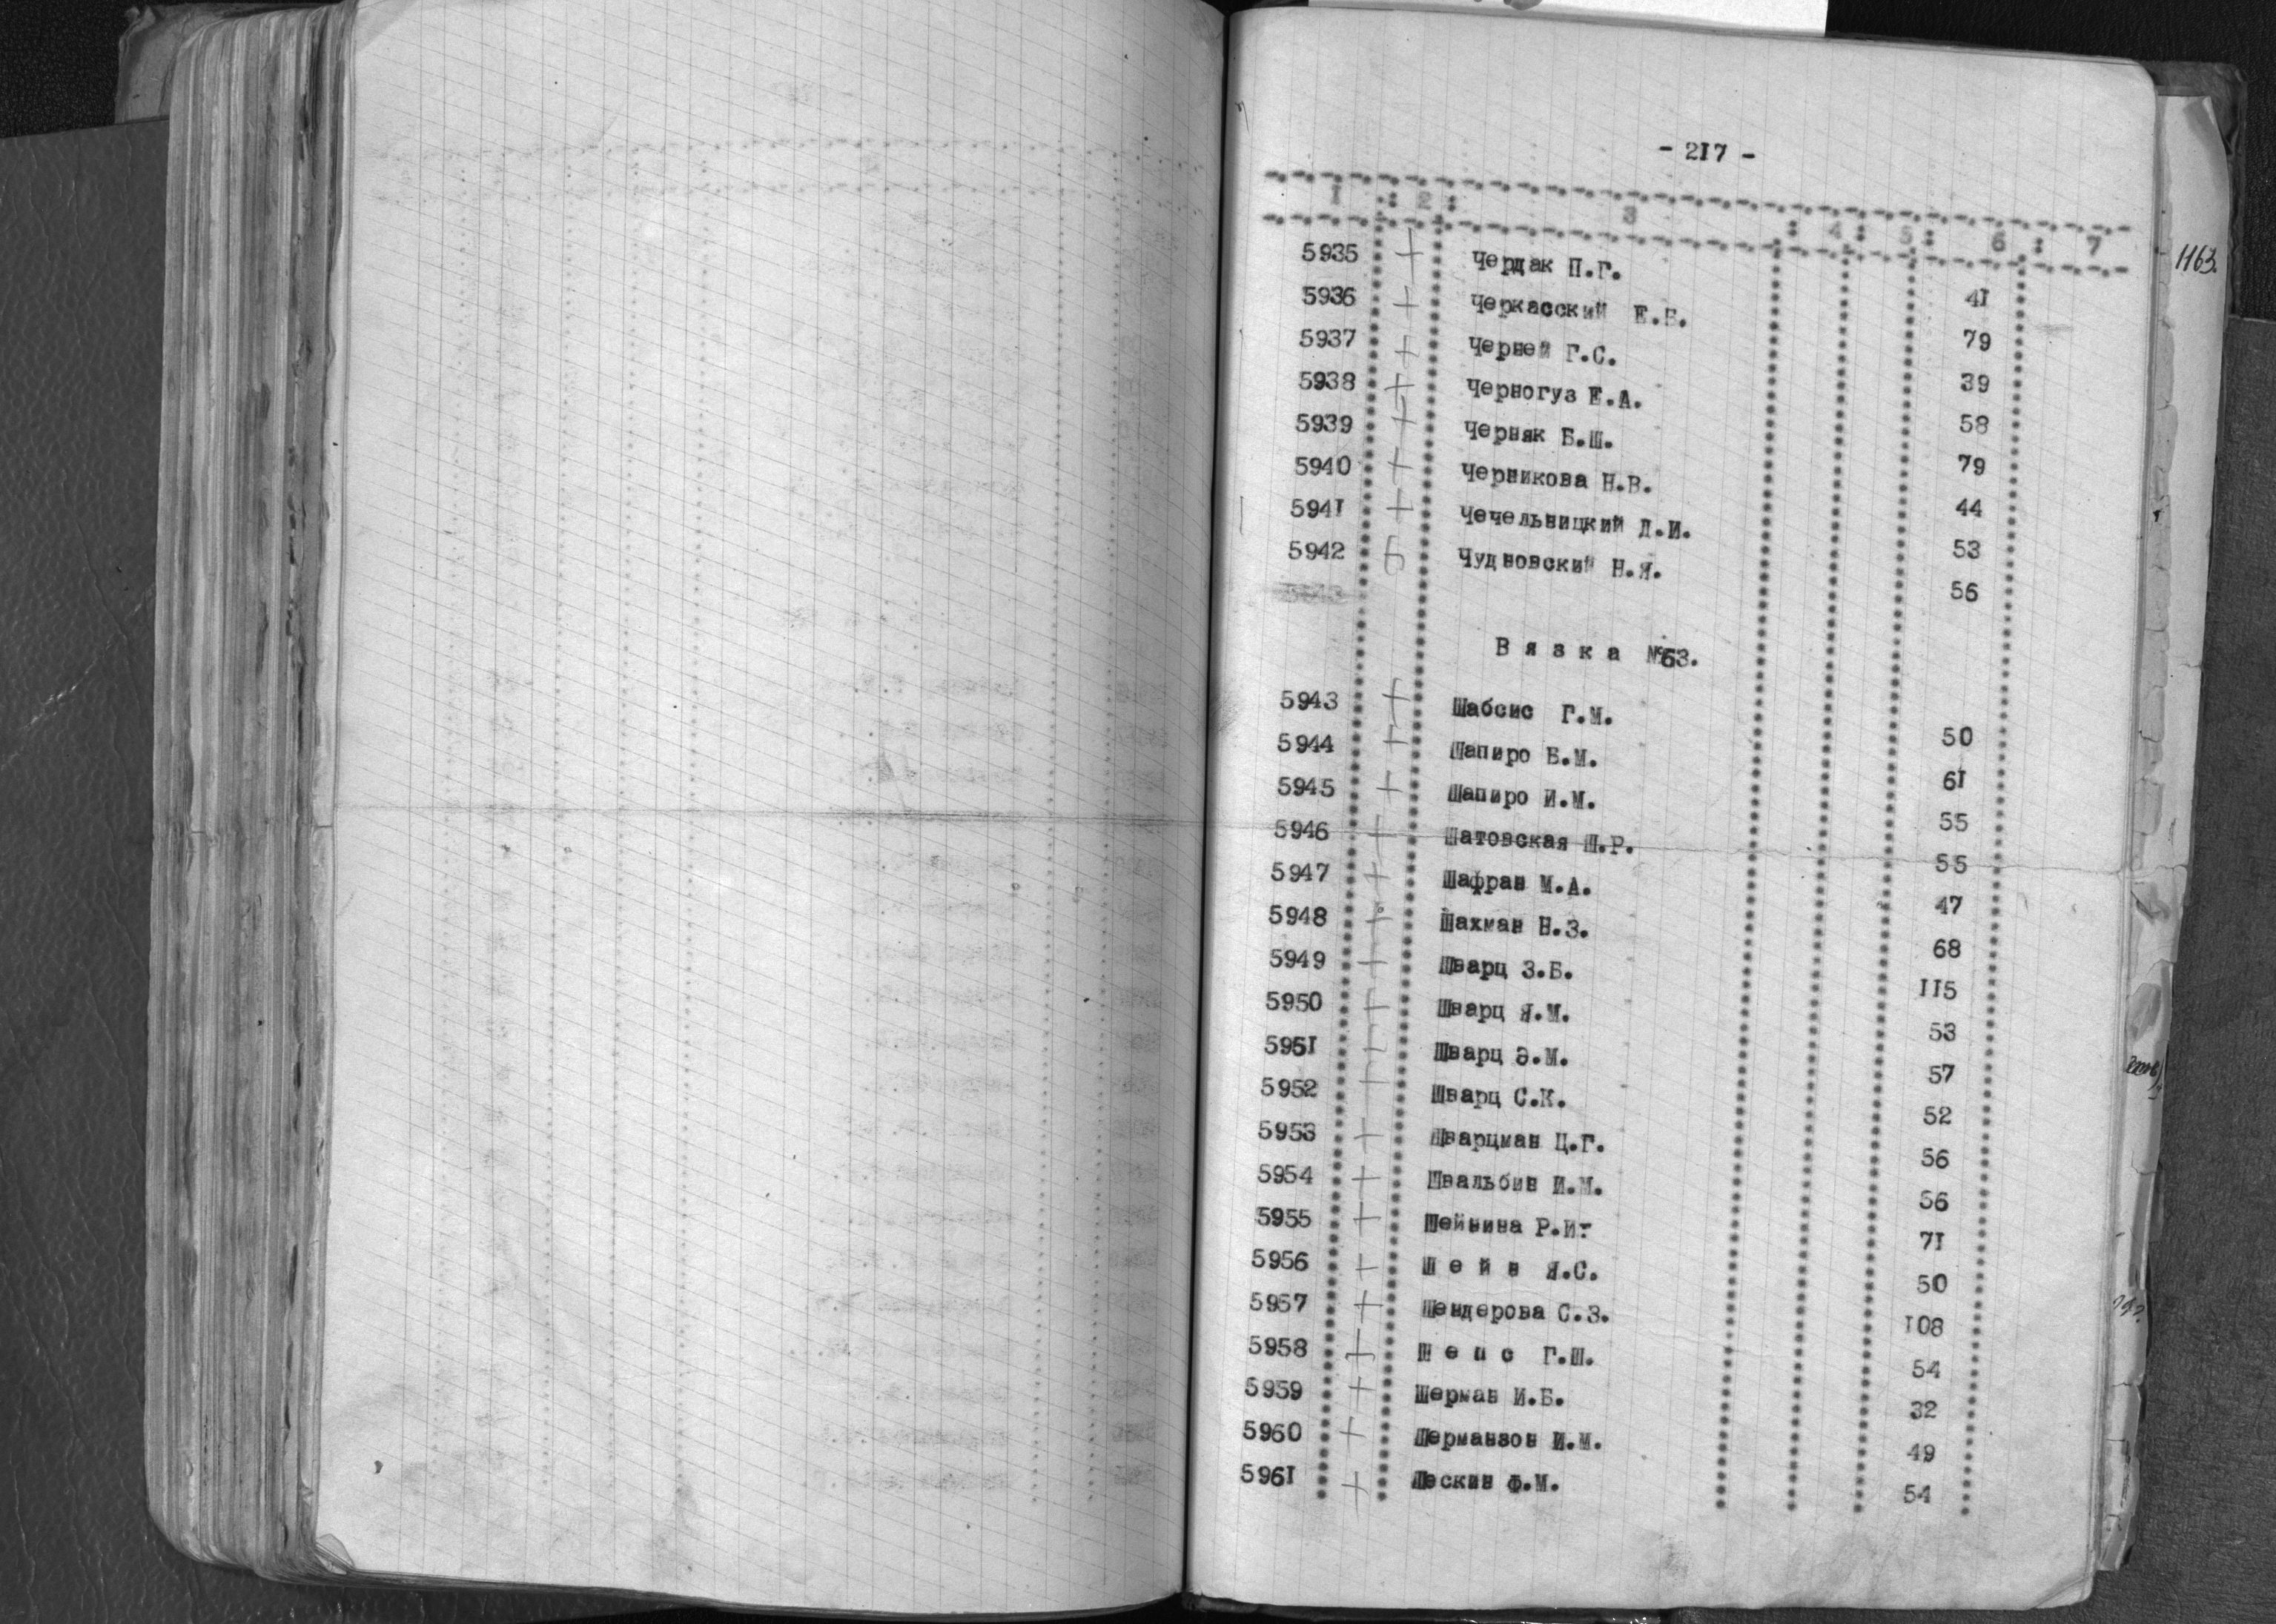 - 2I7 -
I : 2 : 3 : 4 : 5 : 6 : 7
1163.
5935 + Чердак П.Г. 4I
5936 + Черкасский Е.Б. 79
5937 + Черней Г.С. 39
5938 + Черногуз Е.А. 58
5939 + Черняк Б.Ш. 79
5940 + Черникова Н.В. 44
594I + Чечельницкий Д.И. 53
5942 Чудновский Н.Я. 56
Вязка №63.
5943 + Шабсис Г.М. 50
5944 + Шапиро Б.М. 6I
5945 + Шапиро И.М. 55
5946 + Шатовская Ш.Р. 55
5947 + Шафран М.А. 47
5948 + Шахман Н.З. 68
5949 + Шварц З.Б. II5
5950 + Шварц Я.М. 53
595I Шварц Э.М. 57
5952 Шварц С.К. 52
5953 + Шварцман Ц.Г. 56
5954 + Швальбин И.М. 56
5955 + Шейнина Р.И. 7I
5956 + Шейн Я.С. 50
5957 + Шендерова С.З. I08
5958 + Шеис Г.Ш. 54
5959 + Шерман И.Б. 32
5960 + Шермазон И.М. 49
596I + Шескин Ф.М. 54